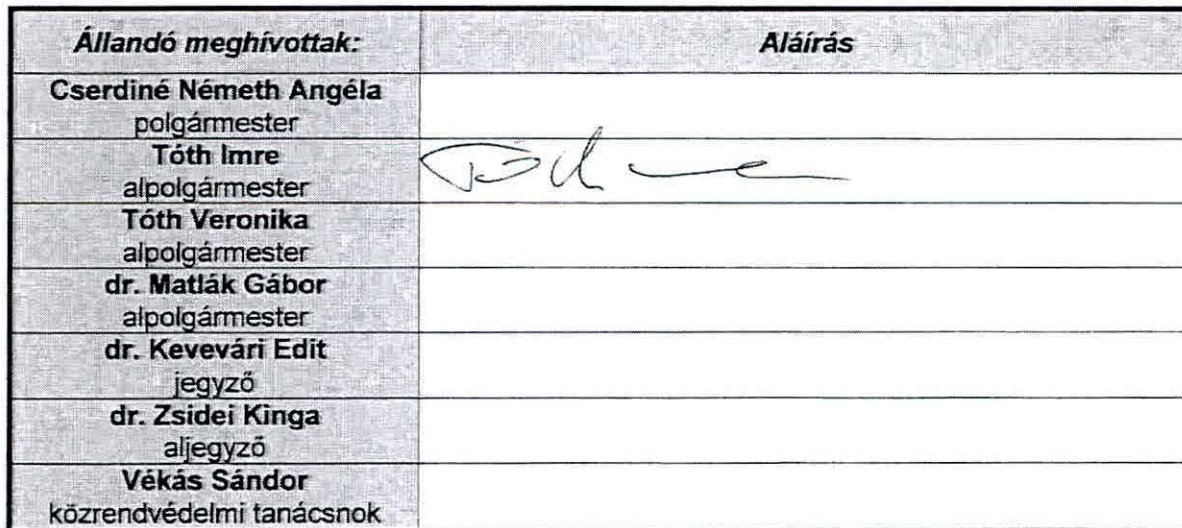 Állandó meghívottak: Aláírás
Cserdiné Németh Angéla
polgármester
Tóth Imre
alpolgármester
Tóth Veronika
alpolgármester
dr. Matlák Gábor
alpolgármester
dr. Kevevári Edit
jegyző
dr. Zsidei Kinga
aljegyző
Vékás Sándor
közrendvédelmi tanácsnok